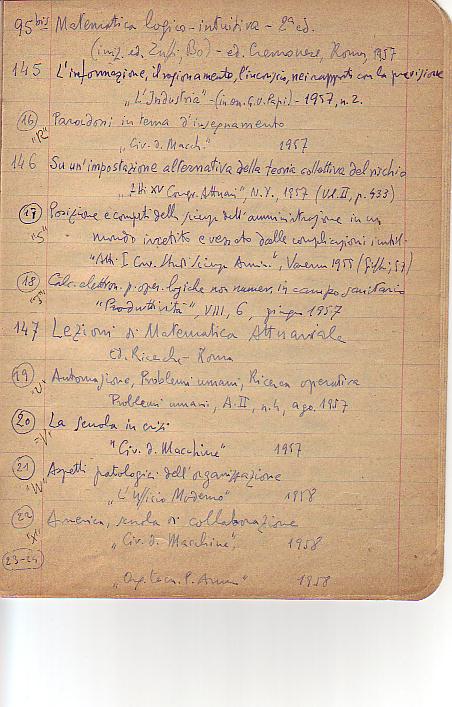 95 bis Matematica logico-intuitiva - 2ª ed.
(iniz. ed. Zuffi, Bo) - ed. Cremonese, Roma, 1957
145 L'informazione, il ragionamento, l'inconscio, nei rapporti con la previsione
"L'Industria" - (in on. G.U. Papi) - 1957, n. 2.
16 Paradossi in tema d'insegnamento
"R" "Civ. d. Macch." 1957
146 Su un'impostazione alternativa della teoria collettiva del rischio
"Atti XV Congr. Attuari", N.Y., 1957 (Vol. II, p. 433)
17 Posizione e compiti della scienza dell'amministrazione in un
"S" mondo incetito e vessato dalle complicazioni inutili
"Atti I Conv. Studi Scienza Ammin.", Varenna 1955 (Giuffrè, 57)
18 Calc. elettron. p. oper. logiche non numer. in campo sanitario
"T" "Produttività", VIII, 6, giugno 1957
147 Lezioni di Matematica Attuariale
Ed. Ricerche - Roma
19 Automazione, Problemi umani, Ricerca operativa
"U" Problemi umani, A. II, n. 4, ago. 1957
20 La scuola in crisi
"V" "Civ. d. Macchine" 1957
21 Aspetti patologici dell'organizzazione
"W" "L'Ufficio Moderno" 1958
22 America, scuola di collaborazione
"X" "Civ. d. Macchine", 1958
23-24
1958